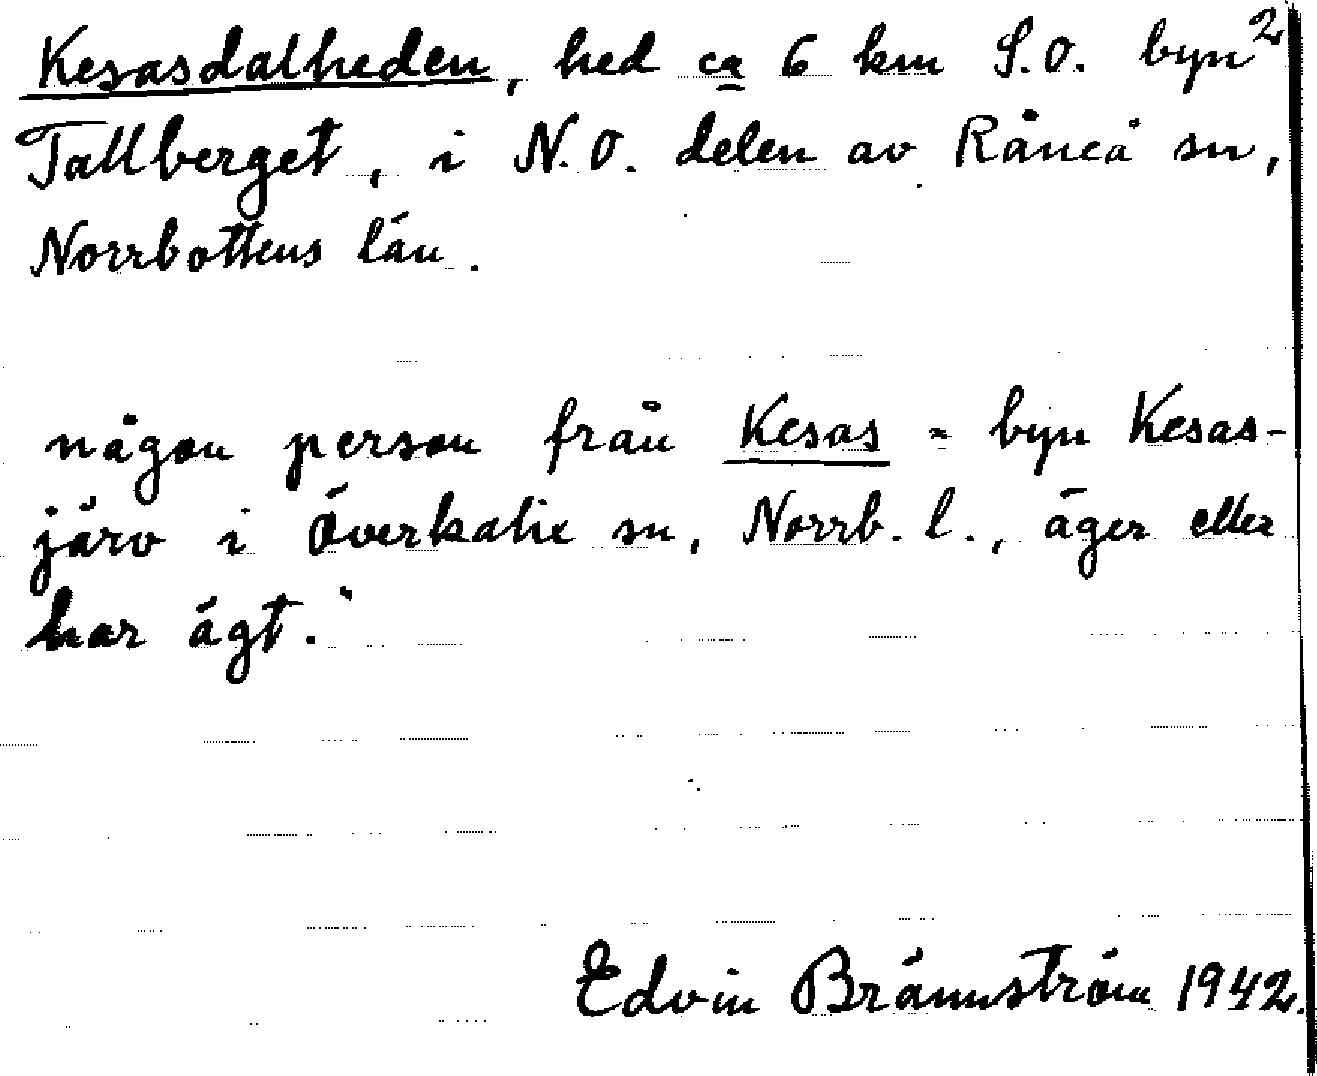 Kesasdalheden, hed ca 6 km S.O. byn 2
Tallberget, i N.O. delen av Råneå sn,
Norrbottens län.
någon person från Kesas = byn Kesas-
järv i Överkalix sn, Norrb. l., äger eller
har ägt."
Edvin Brännström 1942.